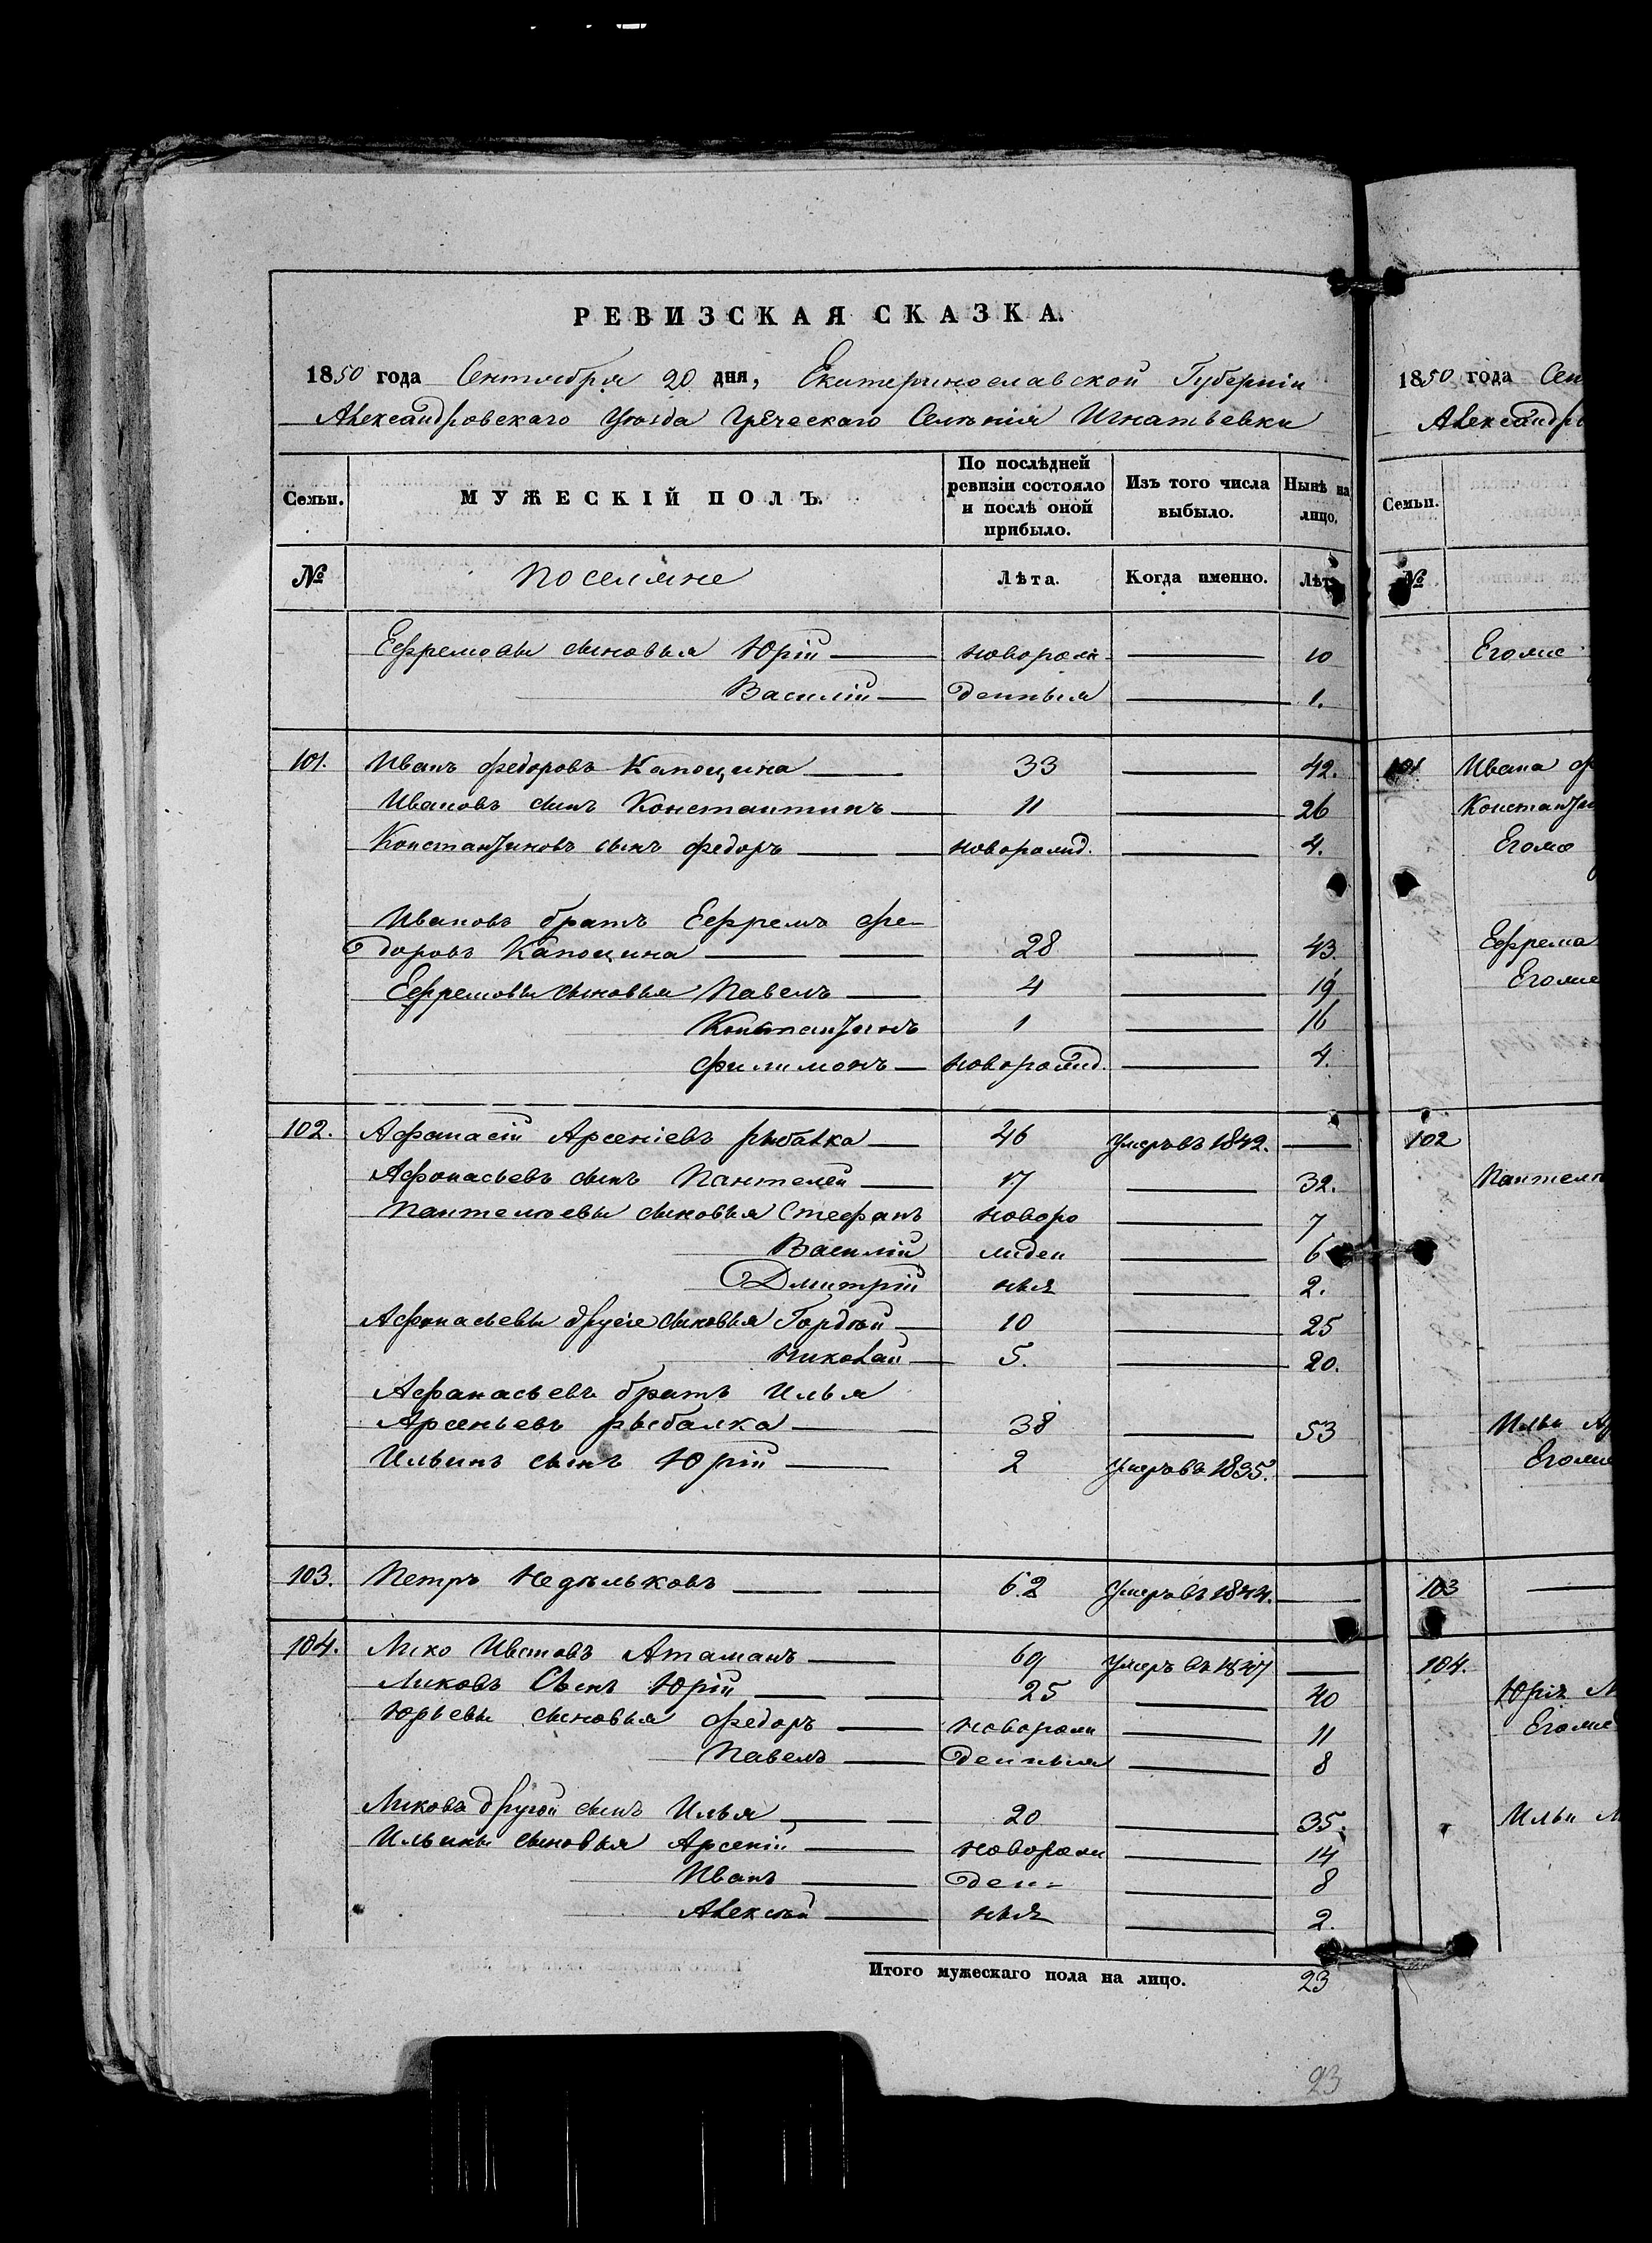 РЕВИЗСКАЯ СКАЗКА.
1850 года Сентября 20 дня, Екатеринославской Губерніи
Александровскаго Уѣзда Греческаго Селенія Игнатьевки
Семьи. МУЖЕСКІЙ ПОЛЪ. По послѣдней ревизіи состояло и послѣ оной прибыло. Изъ того числа выбыло. Нынѣ на лицо.
№ Поселяне Лѣта. Когда именно. Лѣт
Ефремовы сыновья Юрій новорож 10
Василій денныя 1.
101. Иванъ Федоровъ Капоцина 33 42.
Ивановъ сынъ Константинъ 11 26
Константиновъ сынъ Федоръ новорожд. 4.
Ивановъ братъ Ефремъ Фе-
доровъ Капоцина 28 43.
Ефремовы сыновья Павелъ 4 19
Константинъ 1 16
Филимонъ новорожд. 4.
102. Афанасій Арсеніевъ Рыбалка 46 умеръ въ 1842.
Афонасьевъ сынъ Пантелей 17 32.
Пантелѣевы сыновья Стефанъ новоро 7
Василій жден 6
Дмитрій ныя 2.
Афонасьевы другіе сыновья Гордѣй 10 25
Николай 5. 20.
Афанасьевъ братъ Илья
Арсеньевъ Рыбалка 38 53
Ильинъ сынъ Юрій 2 умеръ въ 1835.
103. Петръ Недѣльковъ 62 умеръ въ 1844.
104. Лико Ивановъ Атаманъ 69 умеръ въ 1847
Ликовъ Сынъ Юрій 25 40
Юрьевы сыновья Федоръ новорож 11
Павелъ денныя 8
Ликовъ другой сынъ Илья 20 35.
Ильины сыновья Арсеній новорож 14
Иванъ ден- 8
Алексѣй ныя 2.
Итого мужескаго пола на лицо. 23
23
1850 года Сен
Александр
Семьи.
№
Егоже
101 Ивана Ф
Константин
Егоже
Ефрема
Егоже
102
Пантелѣ
Ильи Ар
Егоже
103
104.
Юрія Л
Егоже
Ильи Л